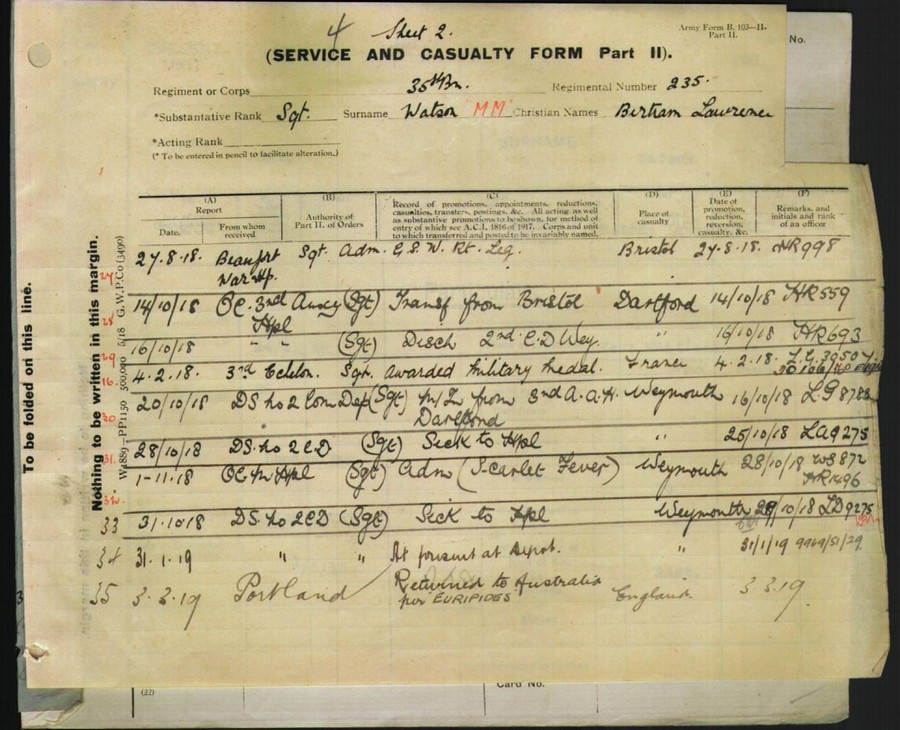 4 Sheet 2.
Army Form B. 103—II.
Part II.
(SERVICE AND CASUALTY FORM Part II).
No.
Regiment or Corps 35th Bn. Regimental Number 235.
*Substantive Rank Sgt. Surname Watson MM Christian Names Bertram Lawrence
*Acting Rank
(* To be entered in pencil to facilitate alteration.)
To be folded on this line.
Nothing to be written in this margin.
W4889—PP1150 500,000 5/18 G.W.P.Co (3490)
(A) (B) (C) (D) (E) (F)
Report
Date. From whom received
Authority of Part II. of Orders
Record of promotions, appointments, reductions, casualties, transfers, postings, &c. All acting as well as substantive promotions to be shown, for method of entry of which see A.C.I. 1816 of 1917. Corps and unit to which transferred and posted to be invariably named.
Place of casualty
Date of promotion, reduction, reversion, casualty, &c.
Remarks, and initials and rank of an officer
27.8.18. Beaufort War Hp. Sgt. Adm. G.S.W. Rt. Leg. Bristol 27.8.18. HR998
14/10/18 OC. 3rd Auxy Hpl (Sgt) Transf from Bristol Dartford 14/10/18 HR559
16/10/18 " " (Sgt) Disch 2nd C.D Wey. " 16/10/18 HR693
4.2.18. 3rd Echelon. Sgt. awarded Military Medal. France 4.2.18.
20/10/18 DS. ho 2 Com Dep (Sgt) M/I from 3rd A.A.H. Dartford Weymouth 16/10/18
28/10/18 DS. ho 2 CD (Sgt) Sick to Hpl " 25/10/18 LA9275
1-11.18 OC. M Hpl (Sgt) Adm (Scarlet Fever) Weymouth 28/10/18 WS872 HR1496
33 31.10.18 DS. ho 2 CD (Sgt) Sick to Hpl Weymouth 28/10/18 LD9275
34 31.1.19 " " At present at Depot. " 31/1/19
35 3.3.19 Portland Returned to Australia per EURIPIDES England. 3.3.19.
(22)
Card No.